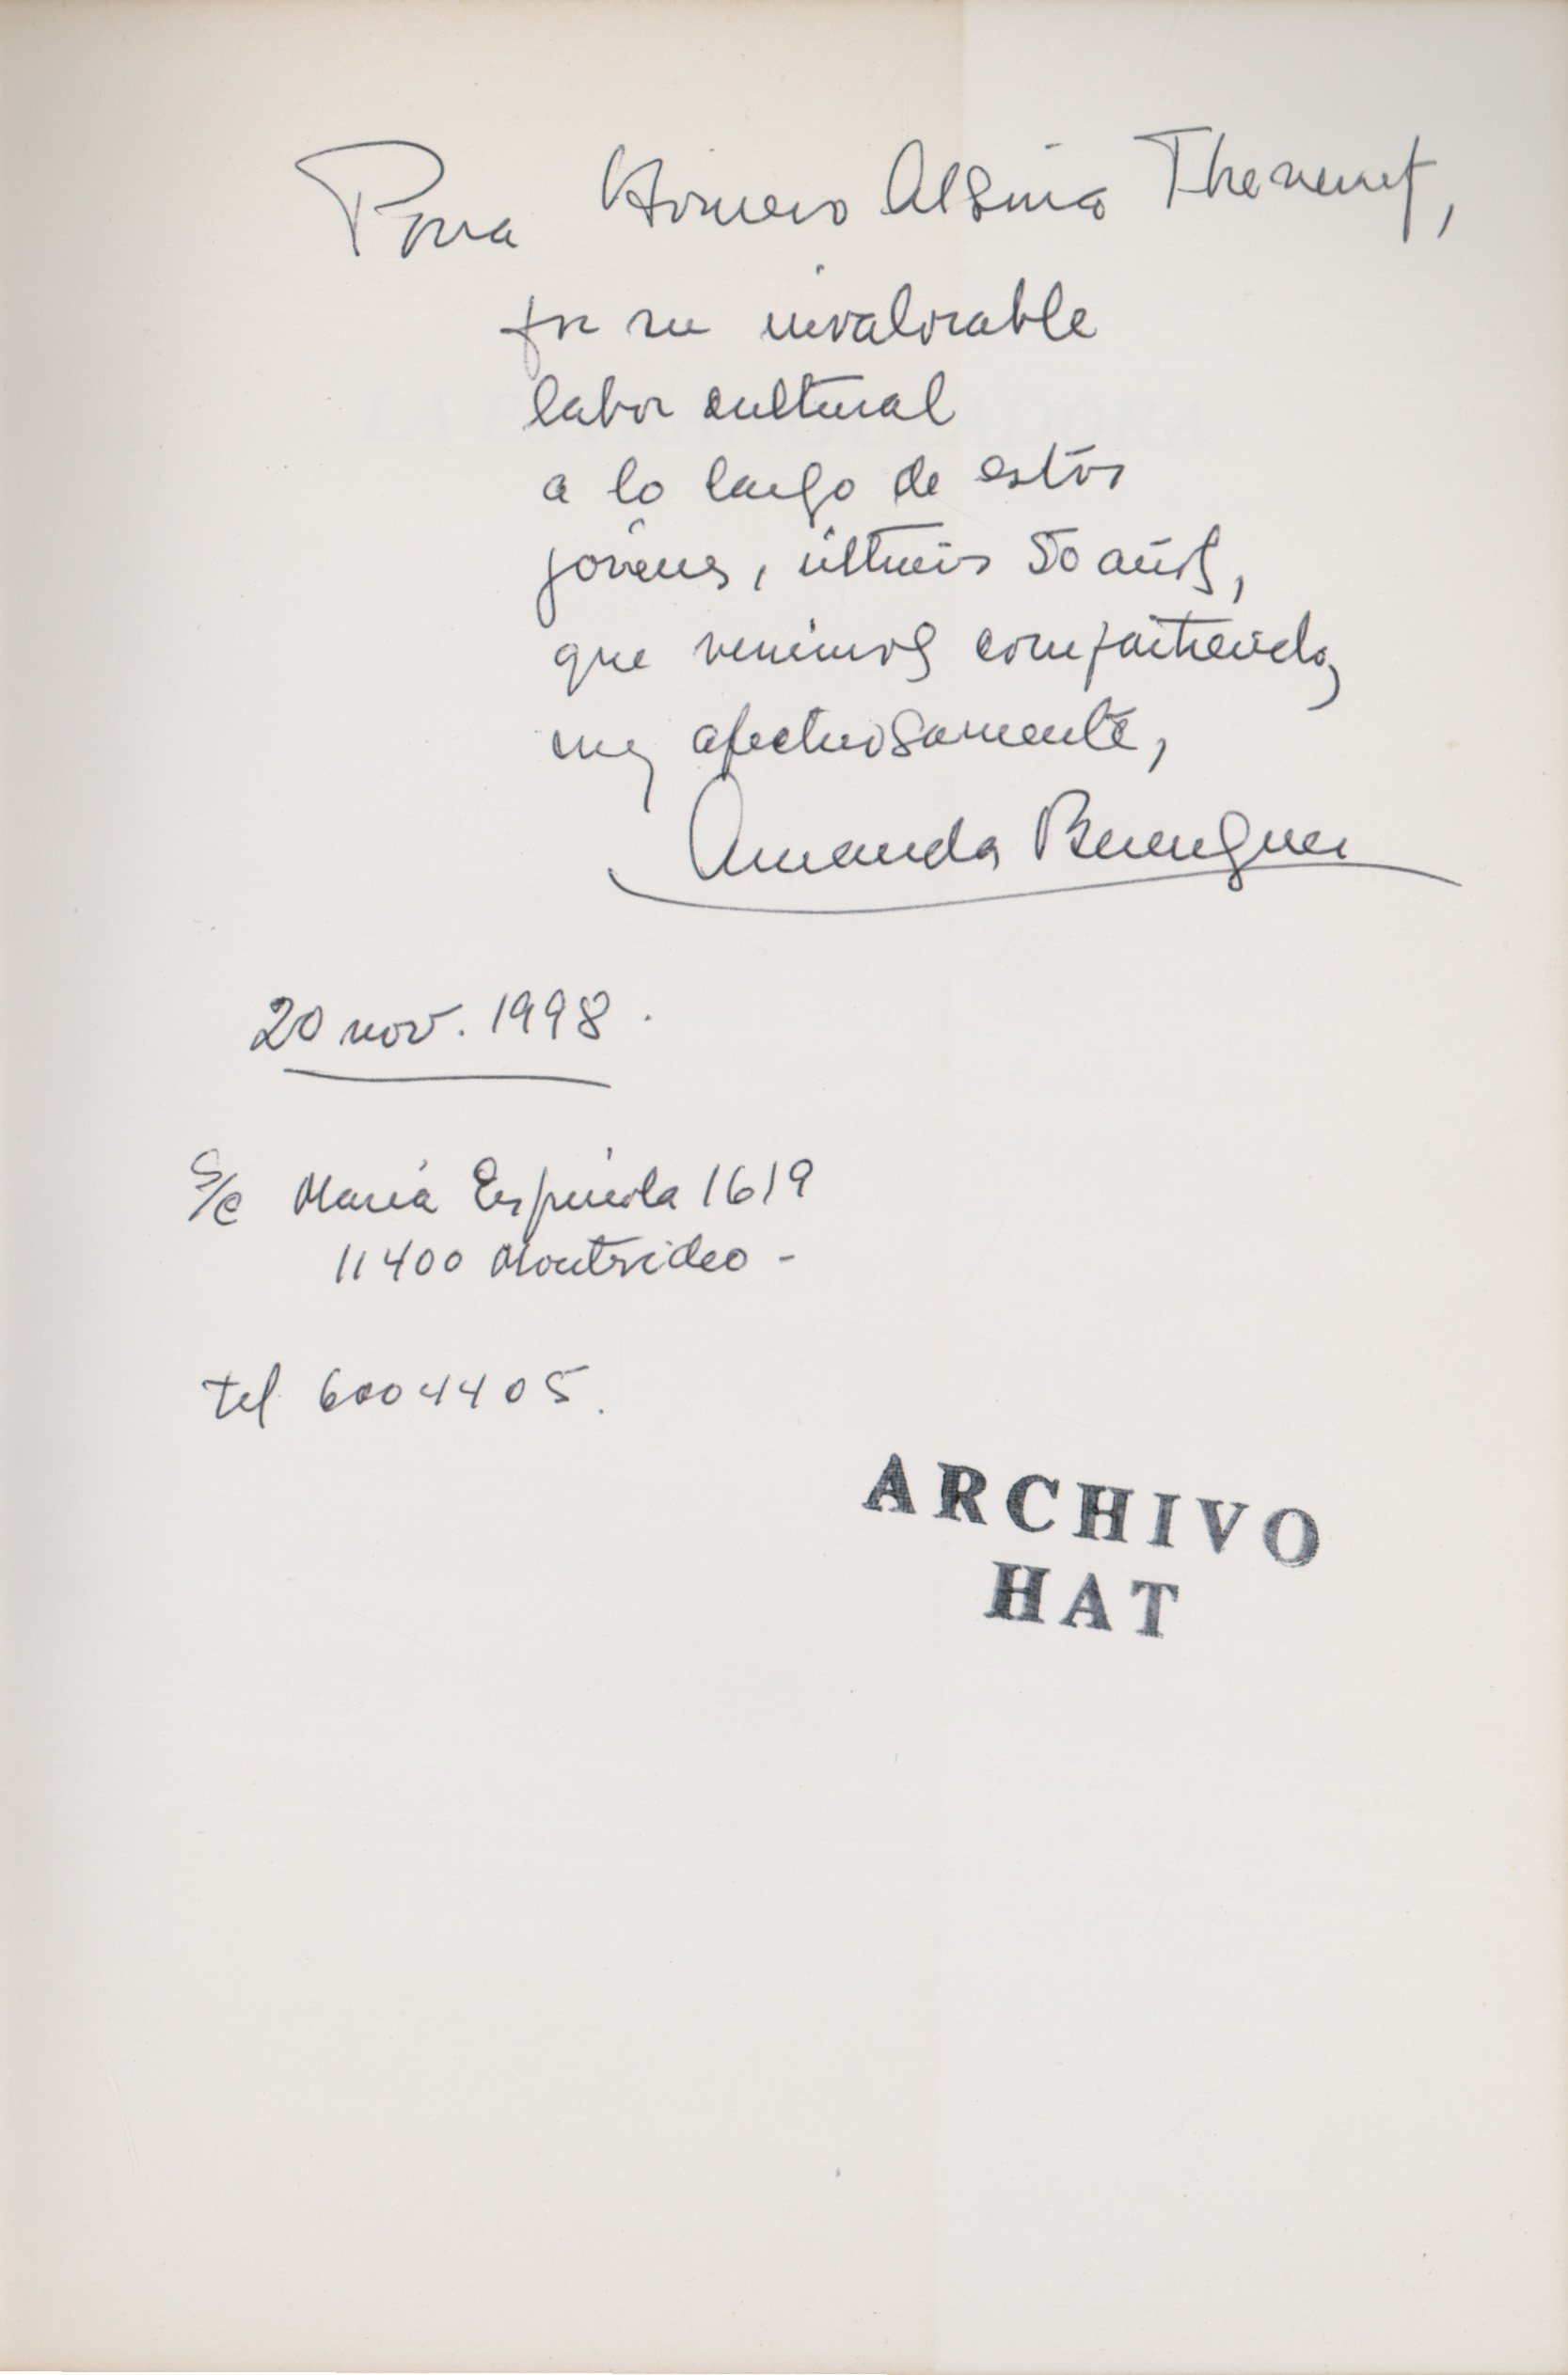 Para Homero Alsina Thevenet,
por su invalorable
labor cultural
a lo largo de estos
jóvenes, últimos 50 años,
que venimos compartiendo,
muy afectuosamente,
Amanda Berenguer
20 nov. 1998.
s/c María Espínola 1619
11400 Montevideo -
tel 6004405.
ARCHIVO
HAT